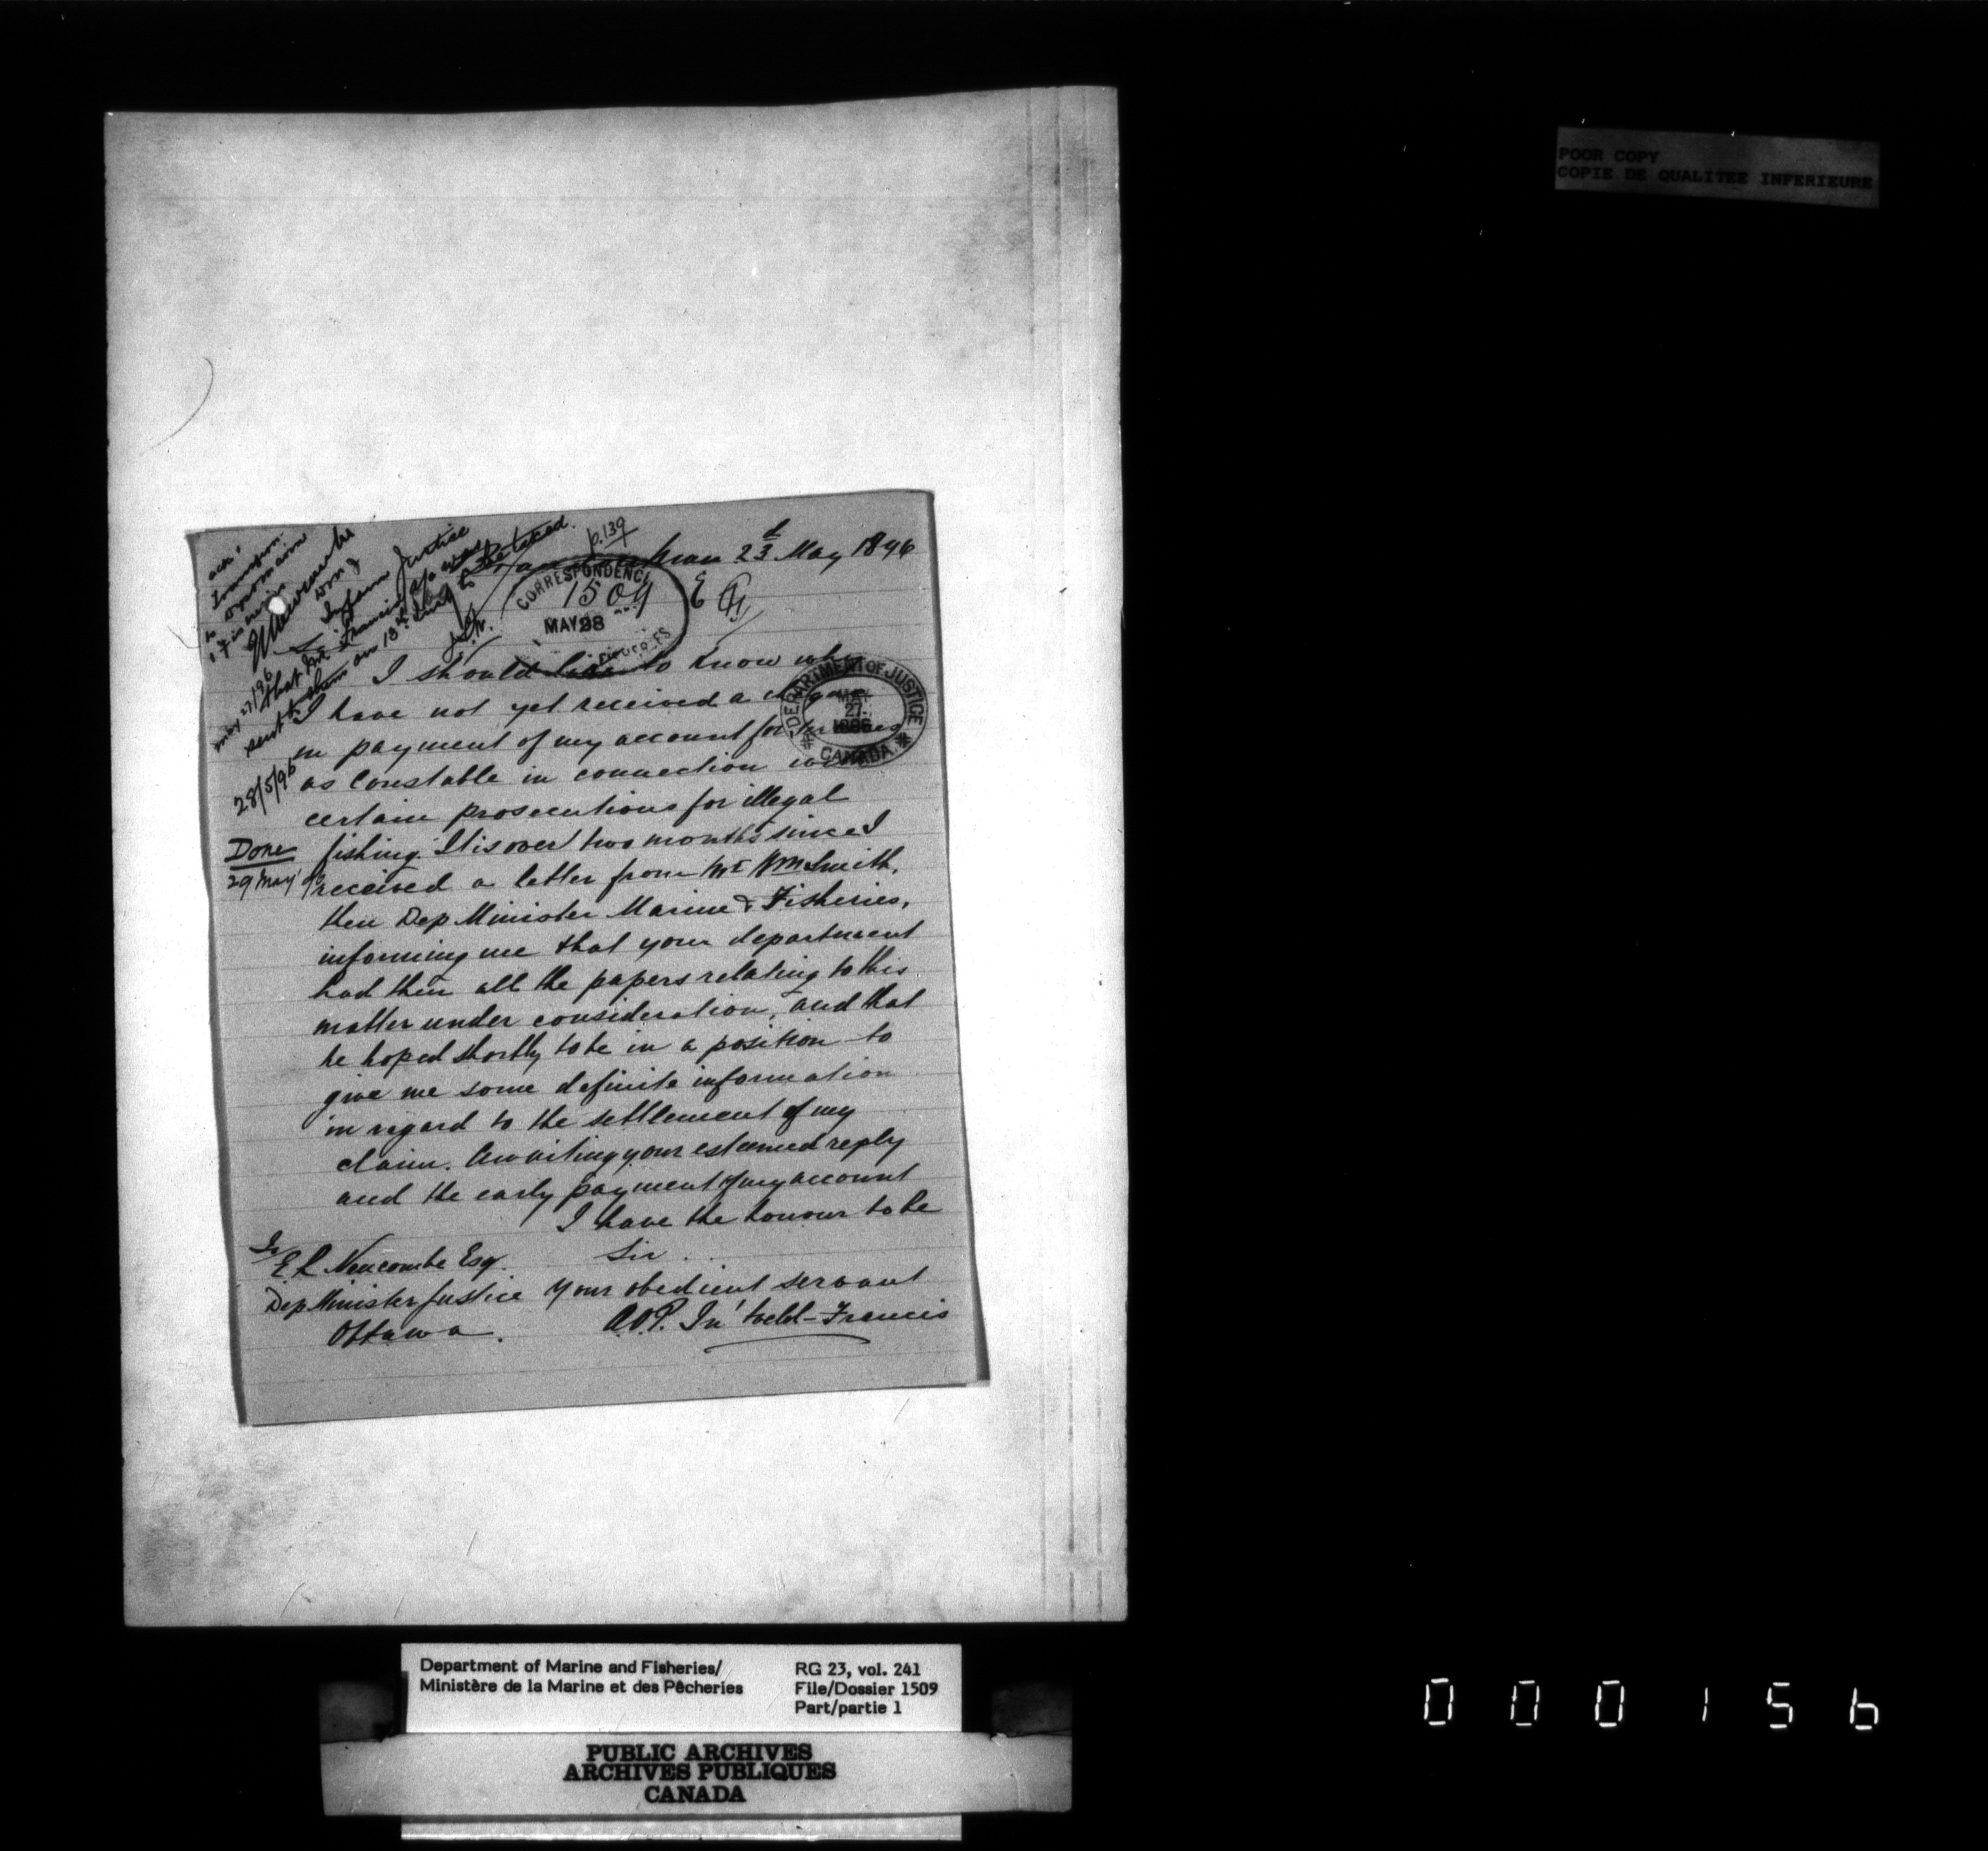 POOR COPY
COPIE DE QUALITEE INFERIEURE
p.139
Brandon Man 23d May 1896
CORRESPONDENCE
1509
MAY 28
FISHERIES
DEPARTMENT OF JUSTICE
MAY
27
1896
CANADA
Inform Justice
that Mr Francis' a/c was
sent to them on 13th inst to be taxed.
28/5/96
Done
29 May 96
May 27/96
I should like to know why
I have not yet received a cheque
in payment of my account for services
as Constable in connection with
certain prosecutions for illegal
fishing. It is over two months since I
received a letter from Mr Wm Smith,
then Dep Minister Marine & Fisheries,
informing me that your department
had then all the papers relating to this
matter under consideration, and that
he hoped shortly to be in a position to
give me some definite information
in regard to the settlement of my
claim. Awaiting your esteemed reply
and the early payment of my account
I have the honour to be
Sir
Your obedient servant
To
E. L. Newcombe Esq.
Dep Minister Justice
Ottawa.
Francis
Department of Marine and Fisheries/
Ministère de la Marine et des Pêcheries
RG 23, vol. 241
File/Dossier 1509
Part/partie 1
PUBLIC ARCHIVES
ARCHIVES PUBLIQUES
CANADA
000156